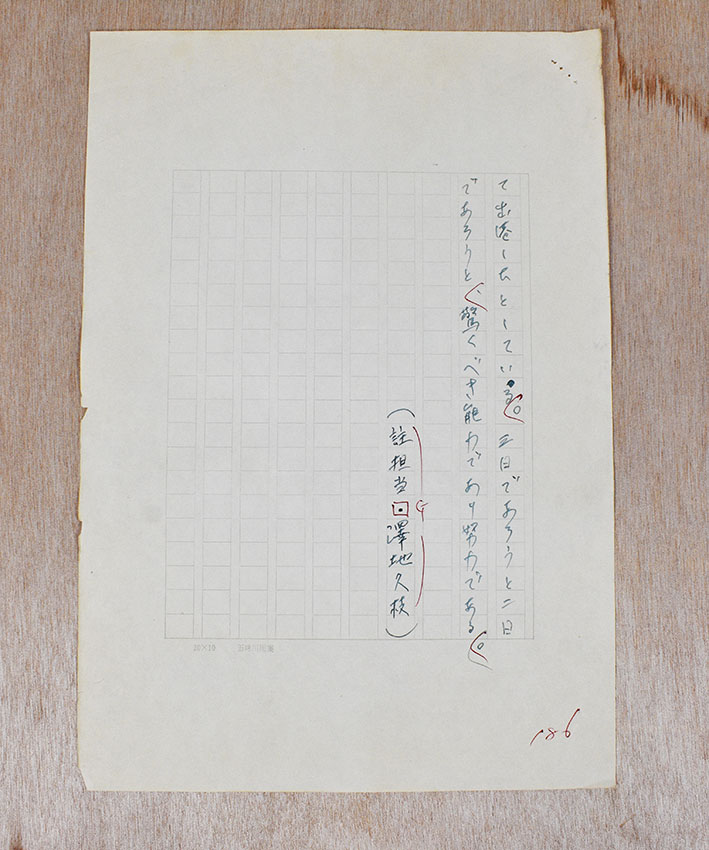 て出港したとしている。三日であろうと二日
であろうと、驚くべき能力であり努力である。
(註担当・澤地久枝)
186
20×10